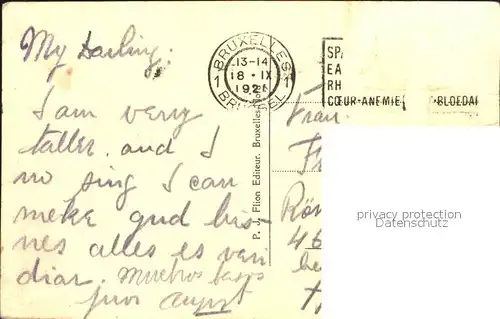 My Darling.
I am verry
taller and I
no sing I can
meke gud bis
nes alles es veri
diar. Muchos besos
your August
BRUXELLES
1 1
13-14
18 - IX
192
BRUSSEL
SPA
EA
RH
CŒUR-ANEMIE BLOEDAR
P. J. Flion Editeur, Bruxelles
Frau
Fr
Röm
46
be
privacy protection
Datenschutz